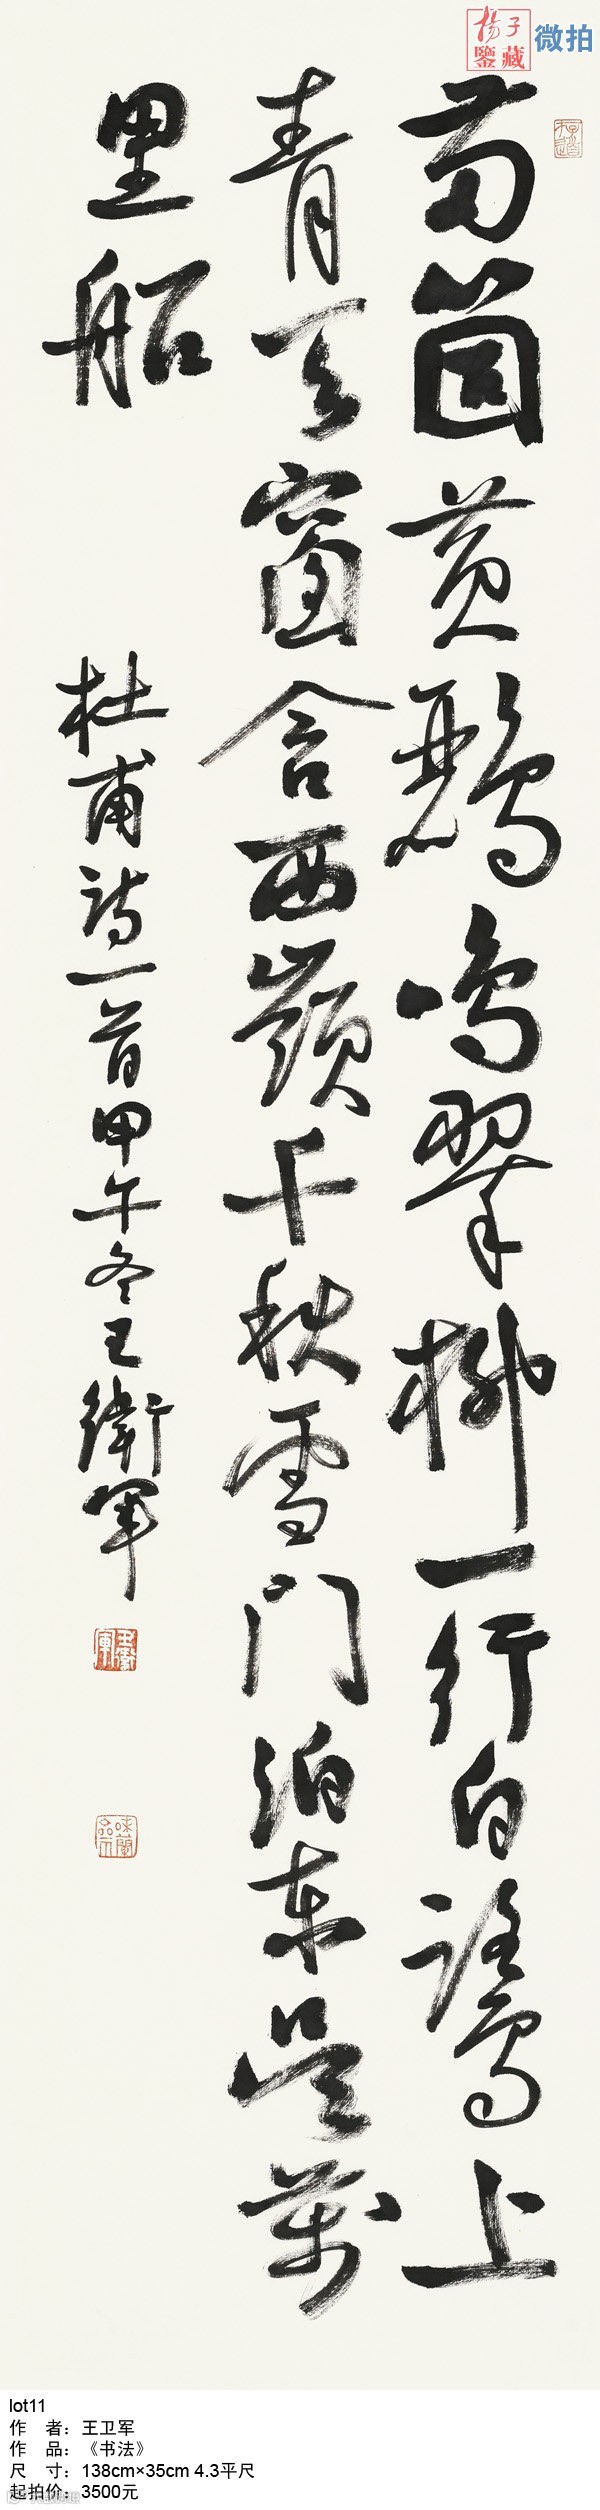 揚子
鑒藏
微拍
两箇黄鸝鳴翠柳一行白鷺上
青天窗含西嶺千秋雪门泊东吴萬
里船
杜甫詩一首甲午冬王衛軍
王衛軍
lot11
作 者：王卫军
作 品：《书法》
尺 寸：138cm×35cm 4.3平尺
起拍价：3500元